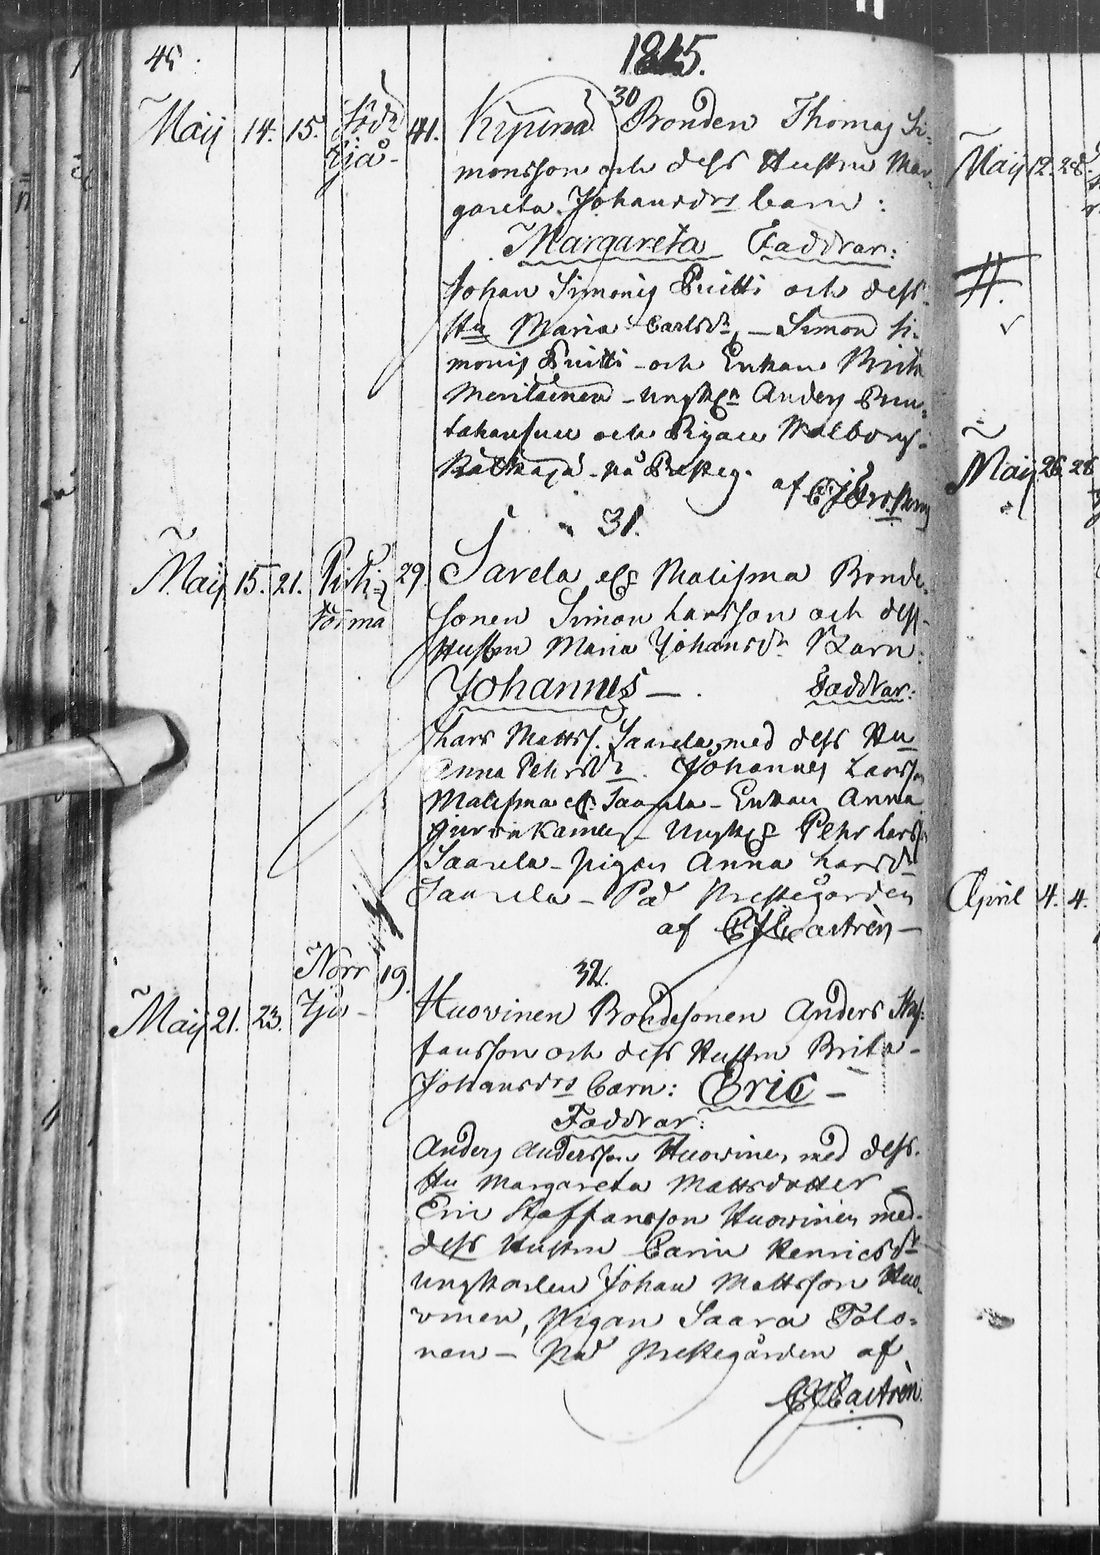 45.
1815.
30
Maij 14. 15. Söd. Kjå- 41. Bonden Thomas Si-
monsson och dess Hustru Mar-
gareta Johansdrs barn:
Margareta Faddrar:
Johan Simonis Puitti och dess
Hu Maria Carlsdr, - Simon Si-
monis Puitti - och Enkan Brita
Meriläinen - ungk. Anders
och Pigan Walborg
på Presteg.
af
31.
Maij 15. 21. 29. Sarela Malisma Bonde-
sonen Simon Larsson och dess
Hustru Maria Johansdr Barn:
Johannes - . Faddrar:
Lars Matts. Saarela, med dess Hu
Anna Pehrsdr. Johannes Larss.
Malisma Saarela - Enkan Anna
Pehr Larss.
Saarela - pigan Anna Larsdr
Saarela - På Prestegården
af CJCastrèn -
32.
Maij 21. 23. Norr Kjå - 19. Huovinen Bondesonen Anders Staf-
fansson och dess Hustru Brita -
Johansdrs Barn: Eric -
Faddrar:
Anders Anderss. Huovinen med dess
Hu Margareta Mattsdotter
Eric Staffansson Huovinen med
dess Hustru Carin Henricsdr
ungkarlen Johan Mattsson Huo-
vinen, Pigan Saara Tolo-
nen - På Prestegården af
CJCastrèn.
Maij 12. 28.
#.
Maij 26. 28
April 4. 4.